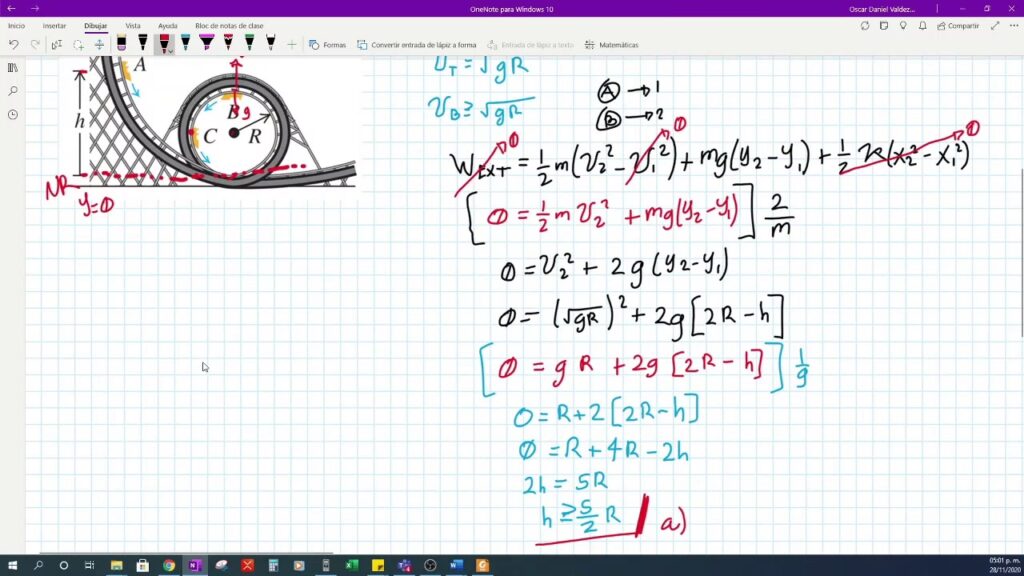 OneNote para Windows 10
Oscar Daniel Valdez...
Inicio Insertar Dibujar Vista Ayuda Bloc de notas de clase
Compartir
Formas Convertir entrada de lápiz a forma Entrada de lápiz a texto Matemáticas
A
h
B g
C R
NR
y=0
v_T = √gR
v_B ≥ √gR
Ⓐ → 1
Ⓑ → 2
W_EXT = 1/2 m(v₂² - v₁²) + mg(y₂ - y₁) + 1/2 k(x₂² - x₁²)
0 0 0
[0 = 1/2 m v₂² + mg(y₂-y₁)] 2/m
0 = v₂² + 2g(y₂-y₁)
0 = (√gR)² + 2g[2R - h]
[0 = gR + 2g[2R - h]] 1/g
0 = R + 2[2R-h]
0 = R + 4R - 2h
2h = 5R
h ≥ 5/2 R a)
05:01 p. m.
28/11/2020